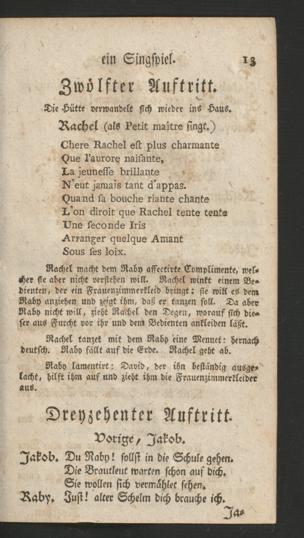 ein Singspiel. 13
Zwölfter Auftritt.
Die Hütte verwandelt sich wieder ins Haus.
Rachel (als Petit maître singt.)
Chere Rachel est plus charmante
Que l'aurore naisante,
La jeunesse brillante
N'eut jamais tant d'appas.
Quand sa bouche riante chante
L'on diroit que Rachel tente tente
Une seconde Iris
Arranger quelque Amant
Sous ses loix.
Rachel macht dem Raby affectirte Complimente, wel-
cher sie aber nicht verstehen will. Rachel winkt einem Be-
dienten, der ein Frauenzimmerkleid bringt: sie will es dem
Raby anziehen und zeigt ihm, daß er tanzen soll. Da aber
Raby nicht will, zieht Rachel den Degen, worauf sich die-
ser aus Furcht vor ihr und dem Bedienten ankleiden läßt.
Rachel tanzet mit dem Raby eine Menuet: hernach
deutsch. Raby fällt auf die Erde. Rachel geht ab.
Raby lamentirt; David, der ihn beständig ausge-
lacht, hilft ihm auf und zieht ihm die Frauenzimmerkleider
aus.
Dreyzehenter Auftritt.
Vorige, Jakob.
Jakob. Du Raby! sollst in die Schule gehen.
Die Brautleut warten schon auf dich.
Sie wollen sich vermählet sehen.
Raby. Just! alter Schelm dich brauche ich.
Ja-